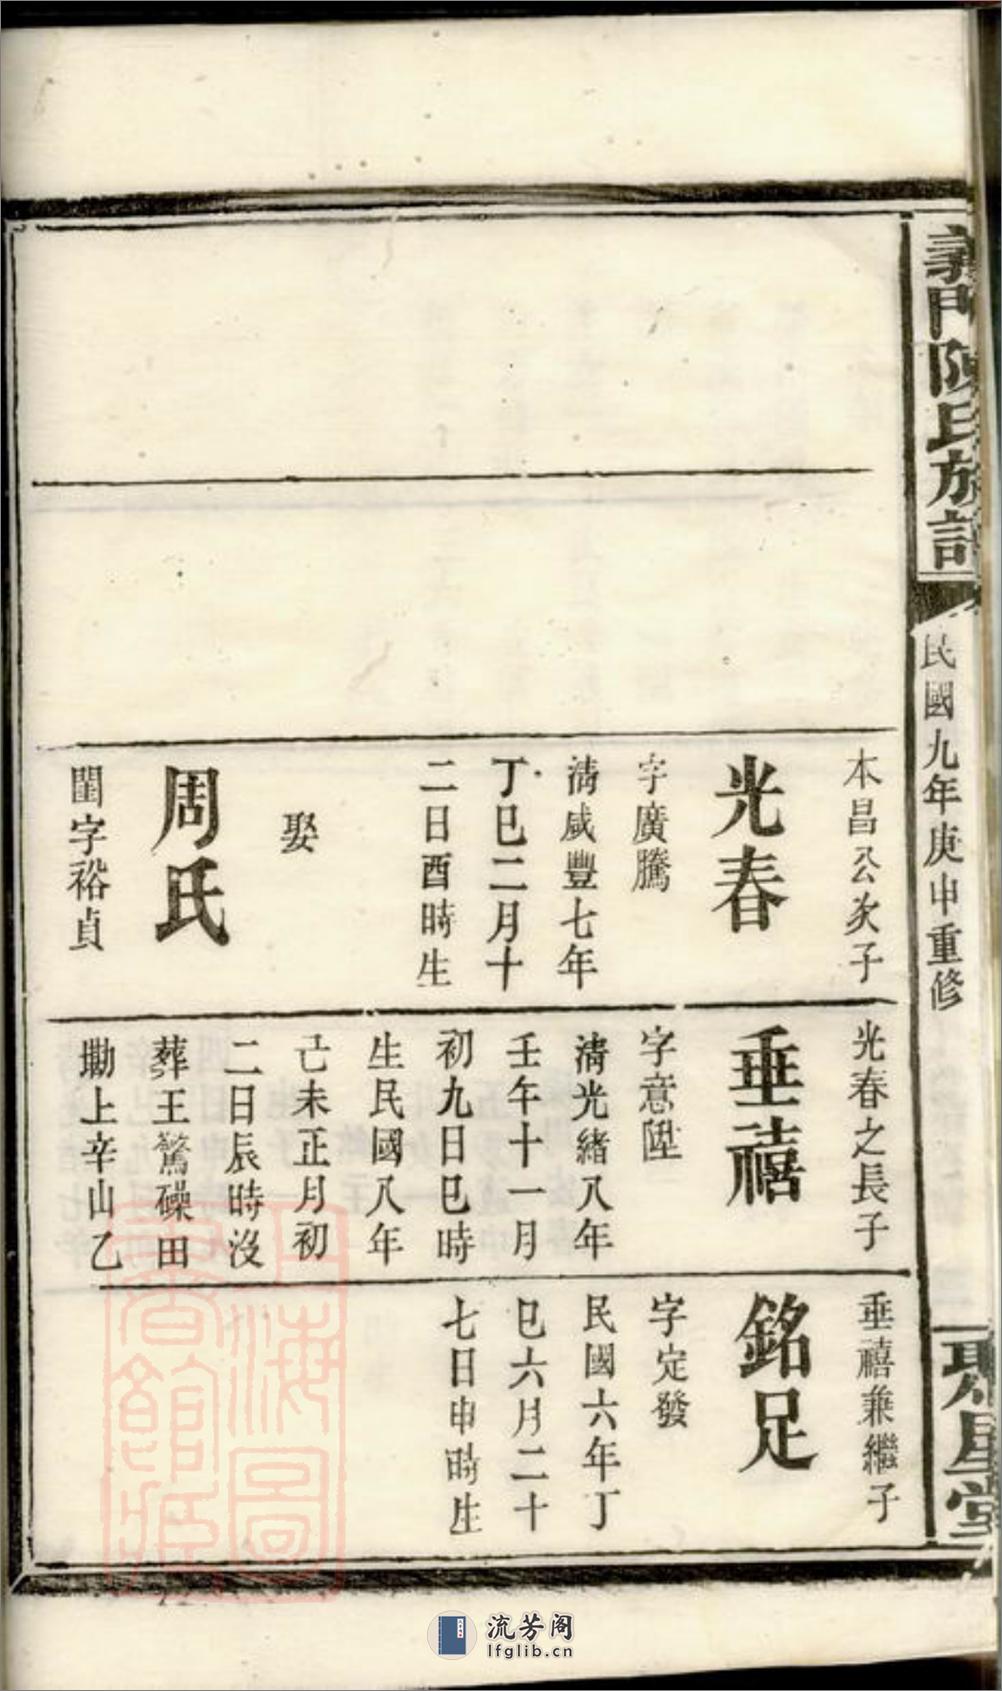 義門陳氏族譜
民國九年庚申重修
聚星堂
本昌公次子
光春
字廣騰
清咸豐七年
丁巳二月十
二日酉時生
娶
周氏
閨字裕貞
光春之長子
垂禧
字意陞
清光緒八年
壬午十一月
初九日巳時
生民國八年
己未正月初
二日辰時沒
葬王鶩磉田
墈上辛山乙
垂禧兼繼子
銘足
字定發
民國六年丁
巳六月二十
七日申時生
上海圖
書館藏
流芳阁
lfglib.cn